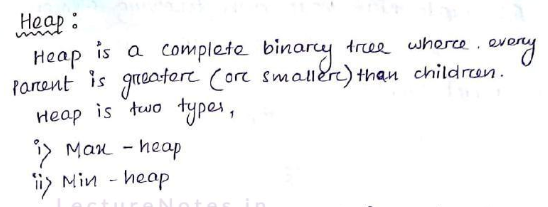 Heap :
Heap is a complete binary tree where every
parent is greater (or smaller) than children.
Heap is two types,
i> Max - heap
ii> Min - heap
LectureNotes.in